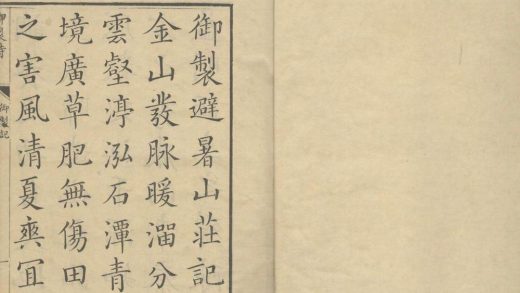 御製避暑山莊記
金山發脉暖溜分
雲壑渟泓石潭青
境廣草肥無傷田
之害風清夏爽宜
御製記